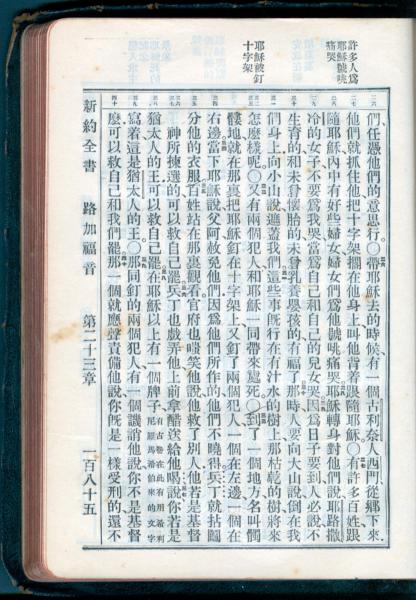 許多人爲
耶穌號咷
痛哭
耶穌被釘
十字架
們任憑他們的意思行。〇帶耶穌去的時候、有一個古利奈人西門、從鄉下來、
他們就抓住他、把十字架擱在他身上、叫他背着跟隨耶穌。〇有許多百姓跟
隨耶穌、內中有好些婦女、婦女們爲他號咷痛哭。耶穌轉身對他們說、耶路撒
冷的女子、不要爲我哭、當爲自己和自己的兒女哭。因爲日子要到、人必說、不
生育的、和未曾懷胎的、未曾乳養嬰孩的、有福了。那時、人要向大山說、倒在我
們身上、向小山說、遮蓋我們。這些事旣行在有汁水的樹上、那枯乾的樹、將來
怎麼樣呢。〇又有兩個犯人、和耶穌一同帶來處死。〇到了一個地方、名叫髑
髏地、就在那裏把耶穌釘在十字架上、又釘了兩個犯人、一個在左邊、一個在
右邊。當下耶穌說、父阿、赦免他們、因爲他們所作的、他們不曉得。兵丁就拈鬮
分他的衣服。百姓站在那裏觀看。官府也嗤笑他說、他救了別人、他若是基督、
神所揀選的、可以救自己罷。兵丁也戲弄他、上前拿醋送給他喝、說、你若是
猶太人的王、可以救自己罷。在耶穌以上有一個牌子、有古卷在此有用希利尼羅馬希伯來的文字
寫着、這是猶太人的王。〇那同釘的兩個犯人、有一個譏誚他說、你不是基督
麼、可以救自己和我們罷。那一個就應聲責備他說、你旣是一樣受刑的、還不
新約全書 路加福音 第二十三章 一百八十五